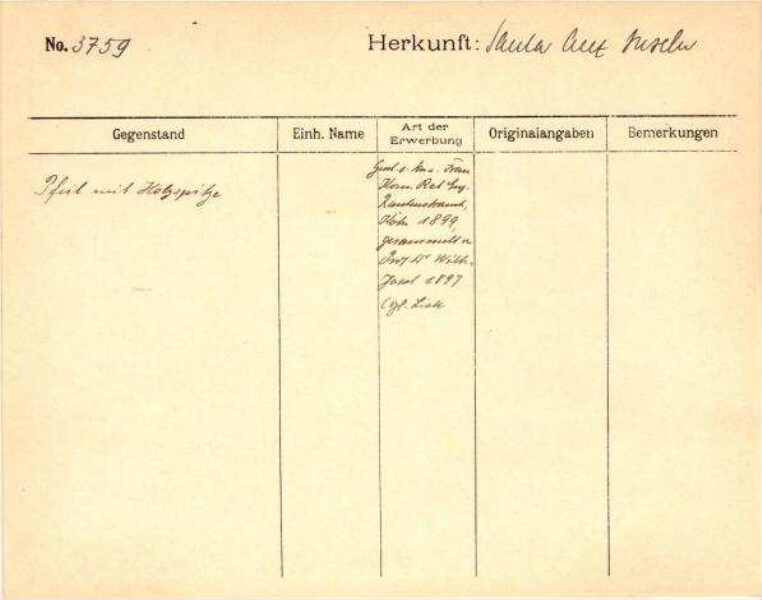 No. 3759
Herkunft: Santa Cruz Inseln
Gegenstand
Einh. Name
Art der Erwerbung
Originalangaben
Bemerkungen
Pfeil mit Holzspitze
Frau
Kom. Rat Eug.
Rautenstrauch,
Köln 1899,
gesammelt v.
Prof. Dr Wilh.
Joest 1897